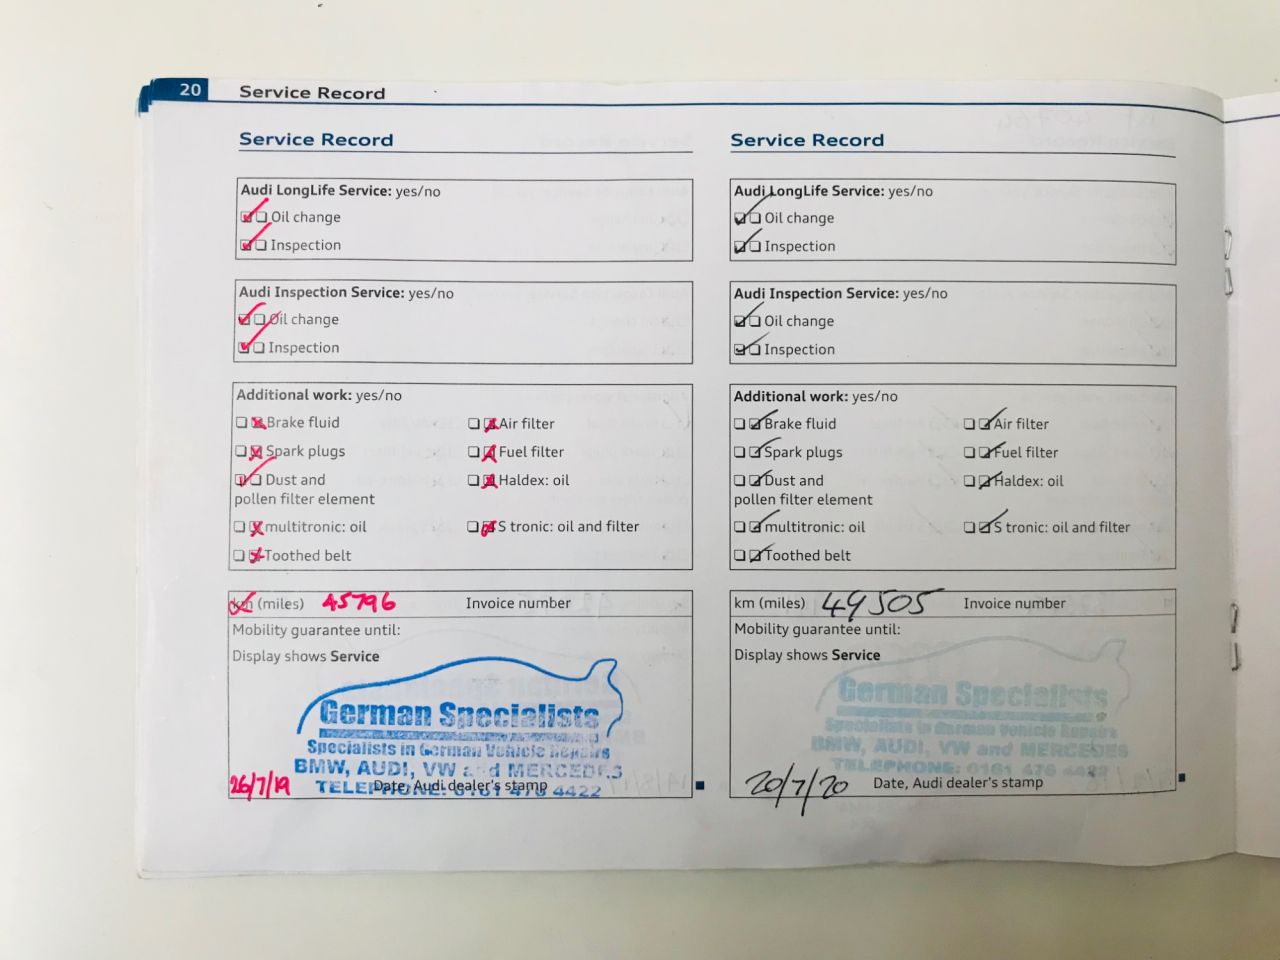 20 Service Record
Service Record
Audi LongLife Service: yes/no
Oil change
Inspection
Audi Inspection Service: yes/no
Oil change
Inspection
Additional work: yes/no
Brake fluid Air filter
Spark plugs Fuel filter
Dust and Haldex: oil
pollen filter element
multitronic: oil S tronic: oil and filter
Toothed belt
km (miles) 45796 Invoice number
Mobility guarantee until:
Display shows Service
German Specialists
Specialists in German Vehicle Repairs
BMW, AUDI, VW and MERCEDES
TELEPHONE: 0161 476 4422
26/7/19 Date, Audi dealer's stamp
Service Record
Audi LongLife Service: yes/no
Oil change
Inspection
Audi Inspection Service: yes/no
Oil change
Inspection
Additional work: yes/no
Brake fluid Air filter
Spark plugs Fuel filter
Dust and Haldex: oil
pollen filter element
multitronic: oil S tronic: oil and filter
Toothed belt
km (miles) 49505 Invoice number
Mobility guarantee until:
Display shows Service
German Specialists
Specialists in German Vehicle Repairs
BMW, AUDI, VW and MERCEDES
TELEPHONE: 0161 476 4422
20/7/20 Date, Audi dealer's stamp